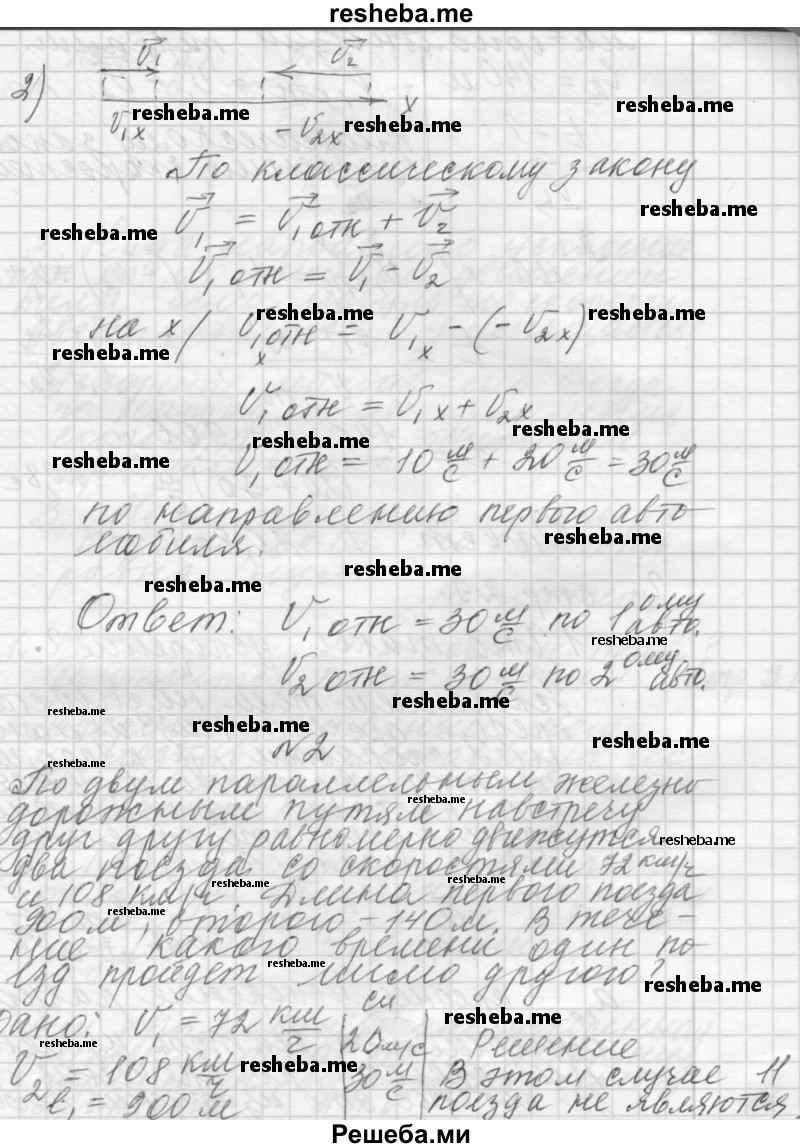 resheba.me
2) V₁ V₂
V₁ₓ -V₂ₓ x
По классическому закону
V₁ = V₁отн + V₂
V₁отн = V₁ - V₂
на x/ V₁отн x = V₁ₓ - (-V₂ₓ)
V₁отн = V₁ₓ + V₂ₓ
V₁отн = 10 м/с + 20 м/с = 30 м/с
по направлению первого авто-
мобиля.
Ответ: V₁отн = 30 м/с по 1ому авто.
V₂отн = 30 м/с по 2ому авто.
№2
По двум параллельным железно-
дорожным путям навстречу
друг другу равномерно движутся
два поезда со скоростями 72 км/ч
и 108 км/ч. Длина первого поезда
900м, второго - 140м. В тече-
ние какого времени один по-
езд пройдет мимо другого?
Дано: СИ
V₁ = 72 км/ч 20 м/с Решение
V₂ = 108 км/ч 30 м/с В этом случае 11
l₁ = 900 м поезда не являются
Решеба.ми